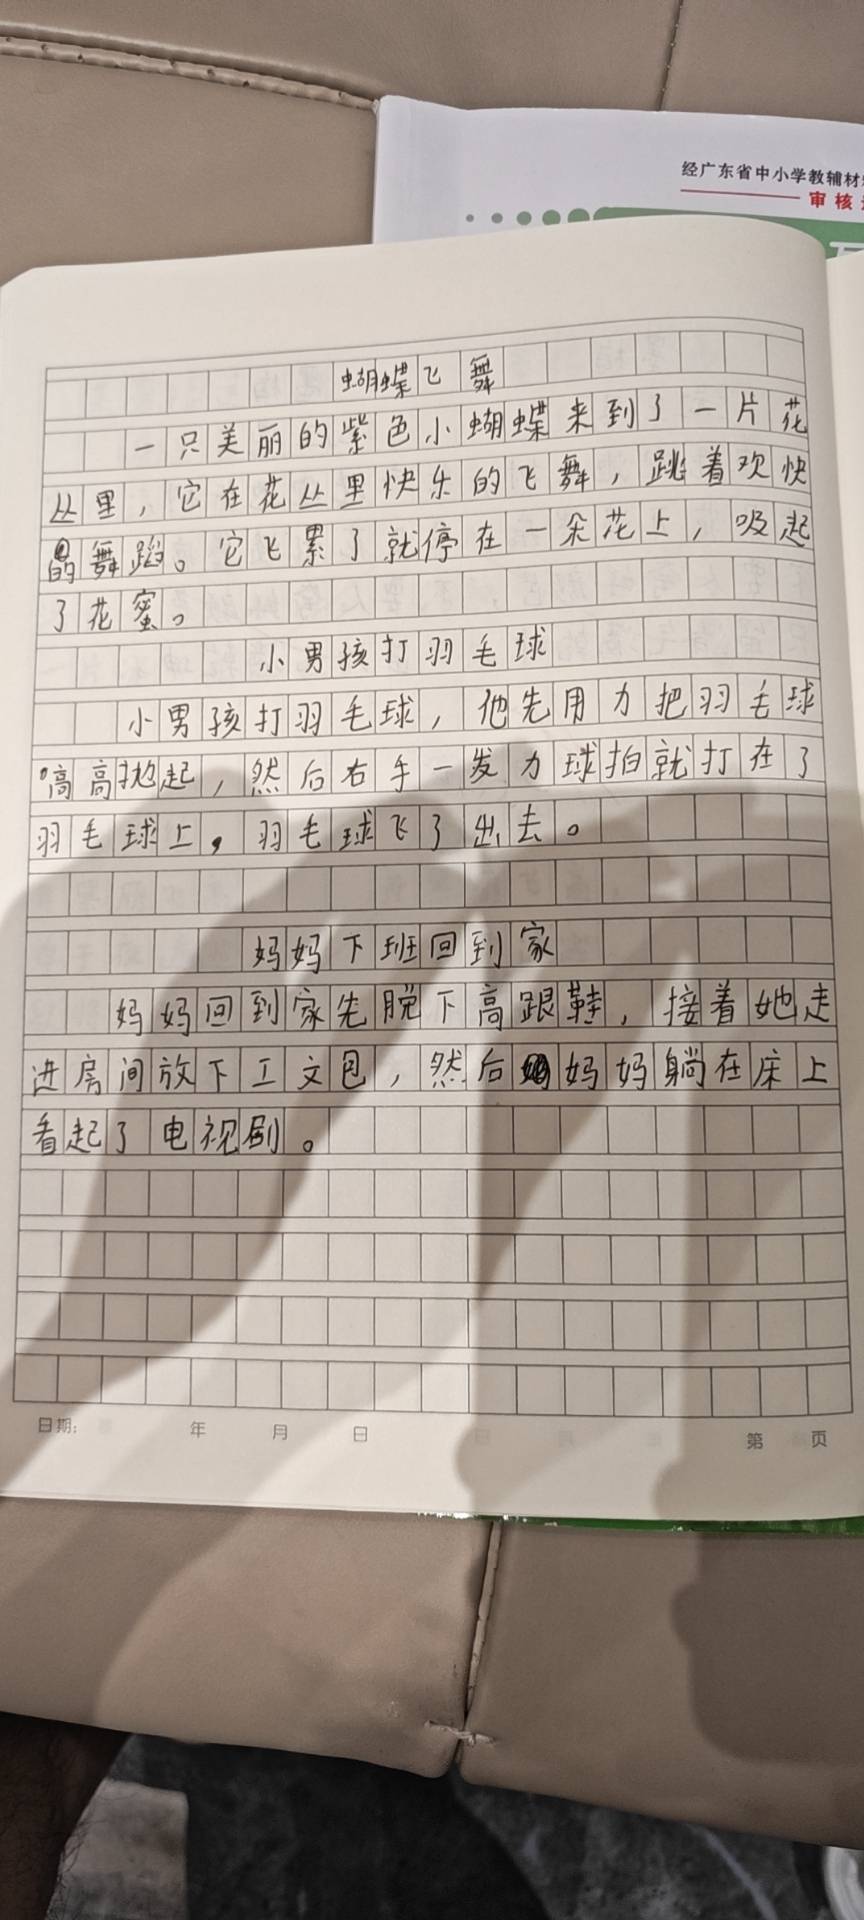 经广东省中小学教辅材
审核
蝴蝶飞舞
一只美丽的紫色小蝴蝶来到了一片花
丛里，它在花丛里快乐的飞舞，跳着欢快
的舞蹈。它飞累了就停在一朵花上，吸起
了花蜜。
小男孩打羽毛球
小男孩打羽毛球，他先用力把羽毛球
高高抛起，然后右手一发力球拍就打在了
羽毛球上，羽毛球飞了出去。
妈妈下班回到家
妈妈回到家先脱下高跟鞋，接着她走
进房间放下工文包，然后妈妈躺在床上
看起了电视剧。
日期： 年 月 日 第 页